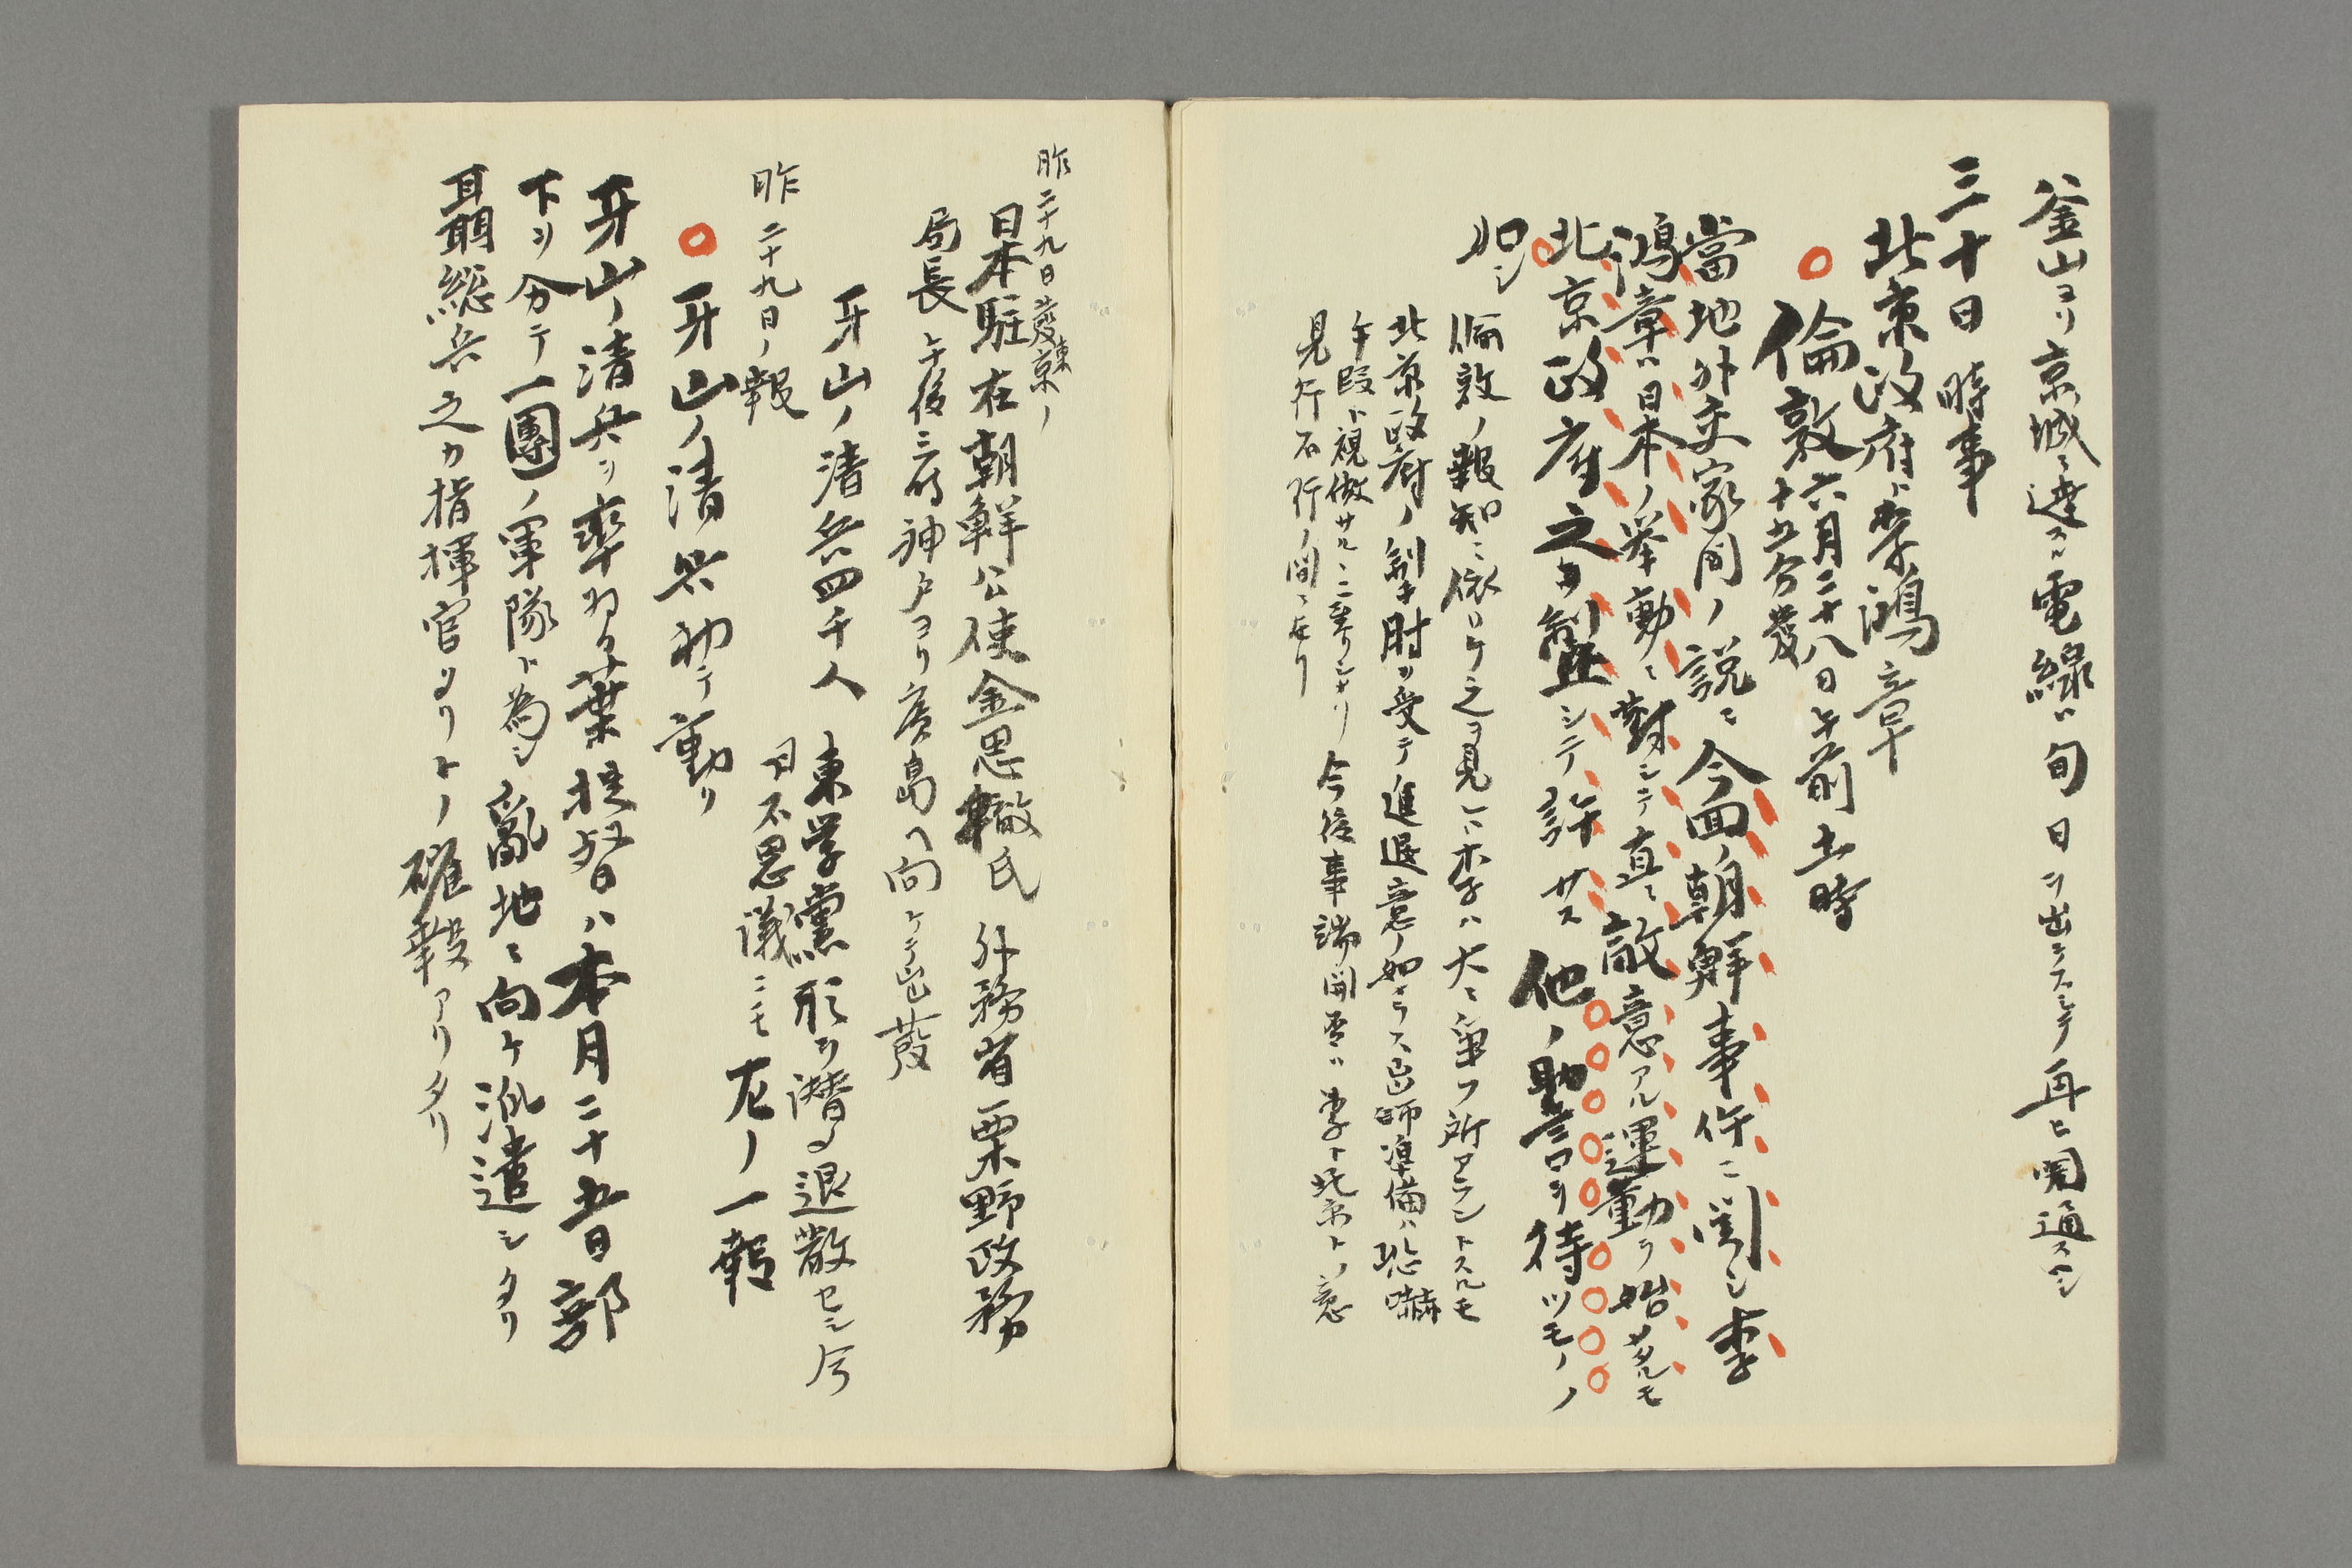 釜山ヨリ京城ニ達スル電線ハ旬日ヲ出テスシテ再ヒ開通スヘシ
三十日時事
北京政府ト李鴻章
○倫敦六月二十八日午前十一時
十五分發
當地外交家間ノ説ニ今回ノ朝鮮事件ニ關シ李
鴻章ハ日本ノ挙動ニ對シテ直ニ敵意アル運動ヲ始メタルモ
北京政府之ヲ制止シテ許サス他ノ助言ヲ待ツモノノ
如シ
倫敦ノ報知ニ依ロケ之ヲ見レハ李ハ大ニ為ス所アラントスルモ
北京政府ノ掣肘ヲ受テ進退意ノ如クナラス出師準備ハ恐嚇
手段ト視做サルヽニ至リシナリ今後事端開否ハ李ト北京トノ意
見行不行ノ間ニ在リ
昨二十九日發東京ノ
日本駐在朝鮮公使金思轍氏 外務省栗野政務
局長午後三時神戸ヨリ廣島ヘ向ケテ出發
牙山ノ清兵四千人 東学黨形ヲ潜メ退散セシ今
日不思儀ニモ左ノ一報
昨二十九日ノ報
○牙山ノ清兵初テ動ク
牙山ノ清兵ヲ率ヰタル葉提督ハ本月二十五日部
下ヲ分テ一團ノ軍隊ト為シ亂地ニ向ケ派遣シタリ
聶総兵之カ指揮官タリトノ確報アリタリ